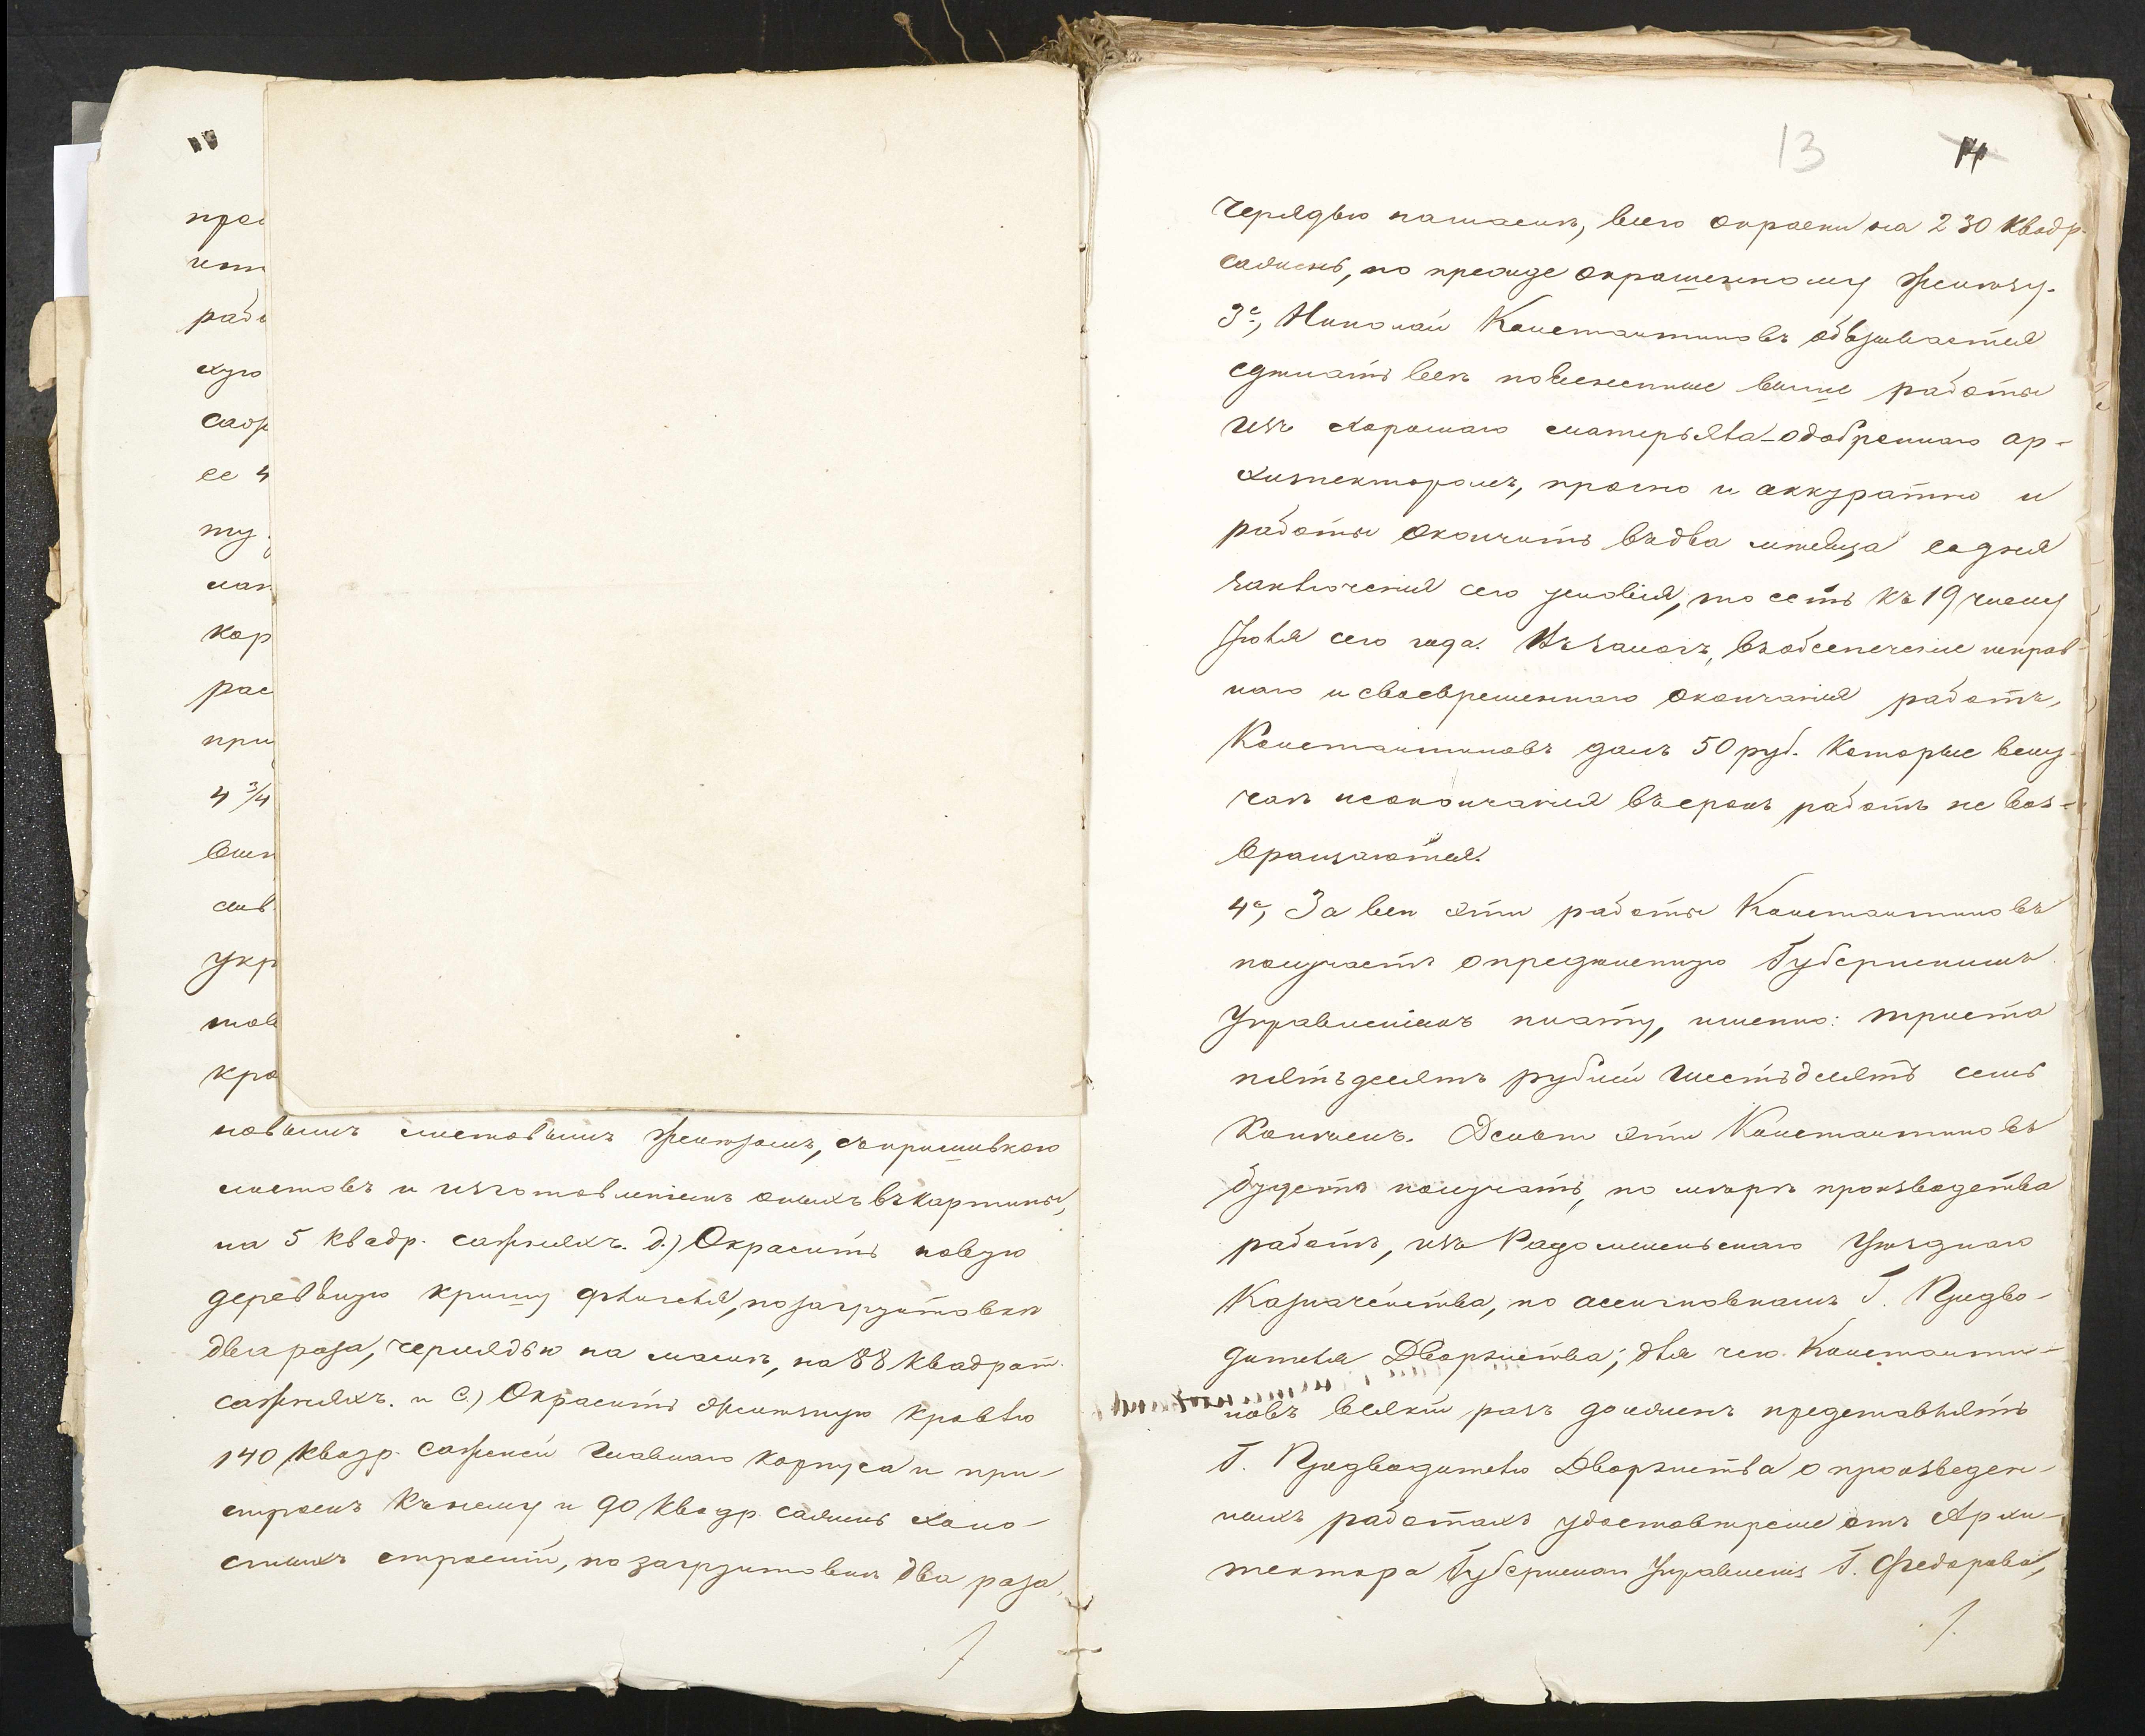 прог
ист
рабо
хую
саж
ее 4
ту
мат
кор
рас
при
4 3/4
вып
укр
тов
кро
новымъ листовымъ желѣзомъ, съ пришивкою
листовъ и изготовленіемъ оныхъ въ картины,
на 5 квадр. саженяхъ. д.) Окрасить новую
деревяную крышу флигеля, по загрунтовкѣ
два раза, чернядью на маслѣ, на 88 квадрат.
саженяхъ. и е.) Окрасить желѣзную кровлю
140 квадр. саженей главнаго корпуса и при-
строекъ къ нему и 90 квадр. сажень холо-
стыхъ строеній, по загрунтовкѣ два раза,
13 14
чернядью на маслѣ, всего окраски на 230 квадр.
сажень, по прежде окрашенному желѣзу.
3е, Николай Константиновъ обязывается
сдѣлать всѣ поясненныя выше работы
изъ хорошаго матеръяла одобреннаго ар-
хитекторомъ, прочно и аккуратно и
работы окончить въ два мѣсяца со дня
заключенія сего условія, то есть къ 19 числу
Іюля сего года. Въ залогъ, въ обезпеченіе исправ-
наго и своевременнаго окончанія работъ,
Константиновъ далъ 50 руб. которые въ слу-
чаѣ неокончанія въ срокъ работъ не воз-
вращаются.
4е, За всѣ эти работы Константиновъ
получаетъ опредѣленную Губернскимъ
Управленіемъ плату, именно: триста
пятьдесятъ рублей шестьдесятъ семь
копѣекъ. Деньги эти Константиновъ
будетъ получать, по мѣрѣ производства
работъ, изъ Радомысльскаго Уѣзднаго
Казначейства, по ассигновкамъ Г. Предво-
дителя Дворянства; для чего Константи-
новъ всякій разъ долженъ представлять
Г. Предводителю Дворянства о произведен-
ныхъ работахъ удостовѣреніе отъ Архи-
тектора Губернскаго Управленія Г. Федорова,